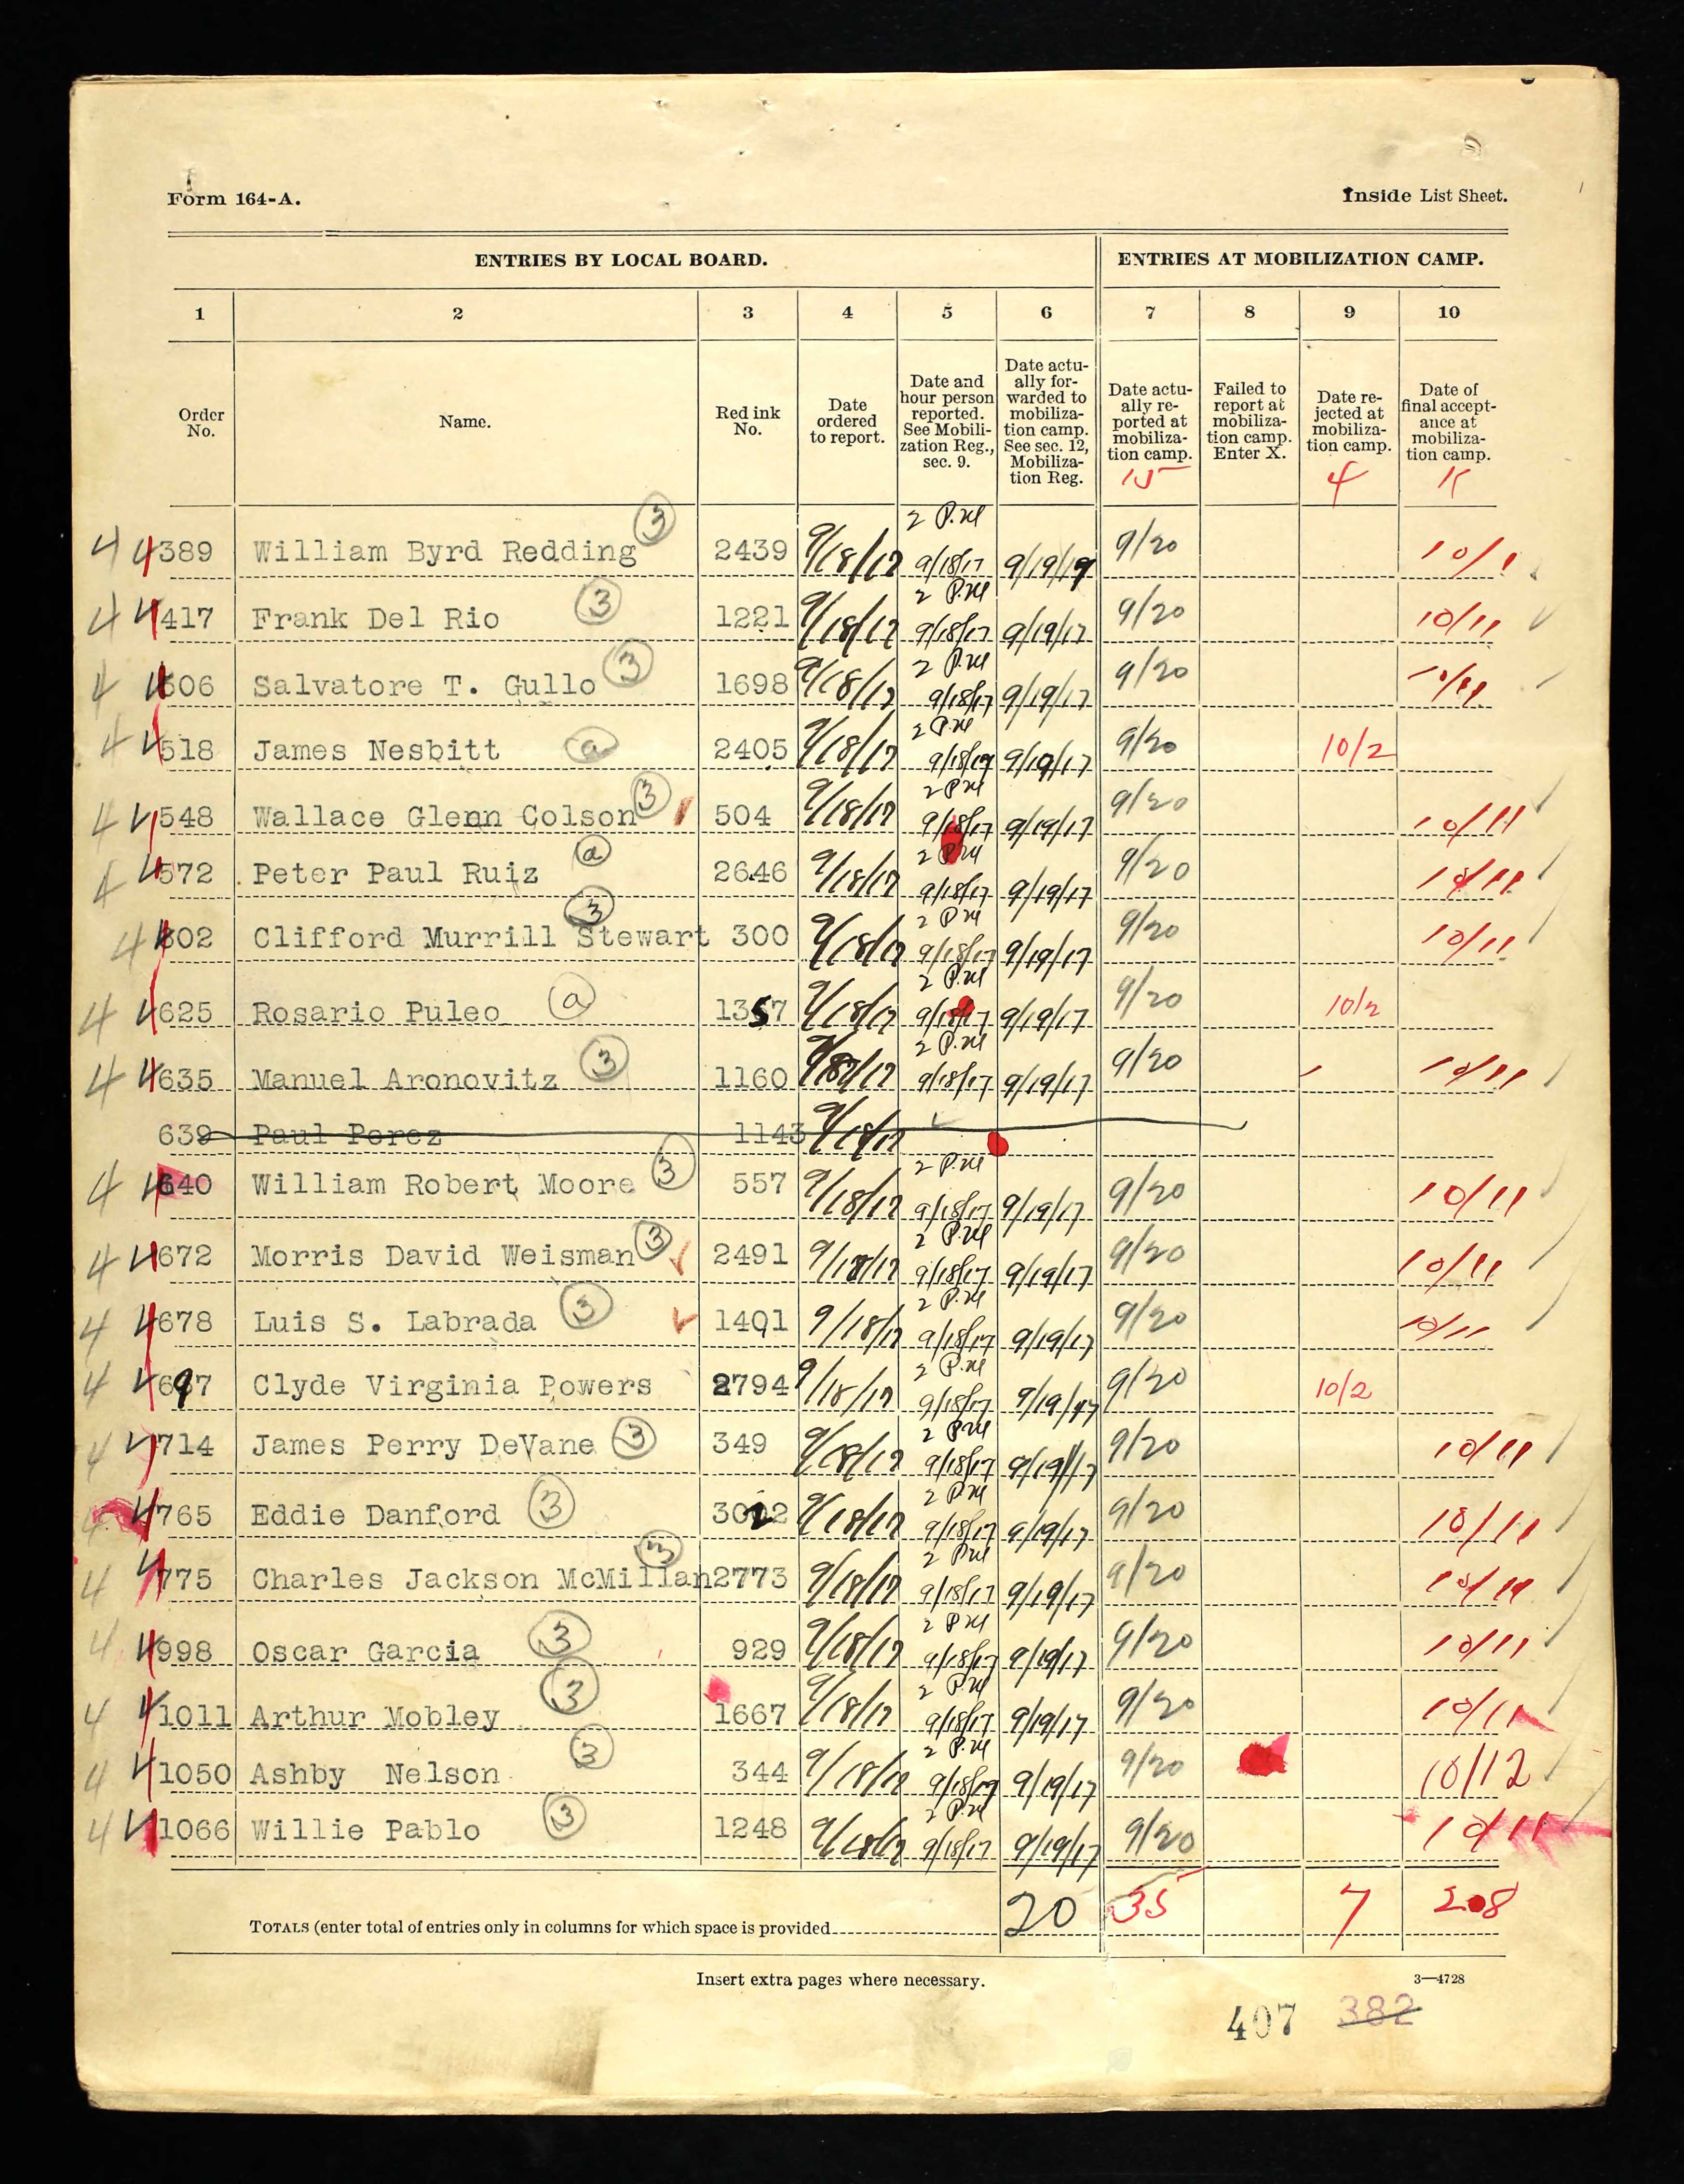 Form 164-A.
Inside List Sheet.
ENTRIES BY LOCAL BOARD. ENTRIES AT MOBILIZATION CAMP.
1 2 3 4 5 6 7 8 9 10
Order No. Name. Red ink No. Date ordered to report. Date and hour person reported. See Mobilization Reg., sec. 9. Date actually forwarded to mobilization camp. See sec. 12, Mobilization Reg. Date actually reported at mobilization camp. Failed to report at mobilization camp. Enter X. Date rejected at mobilization camp. Date of final acceptance at mobilization camp.
15 4 11
4 4 389 William Byrd Redding 3 2439 9/18/17 2 P.M 9/18/17 9/19/19 9/20 10/1
4 4 417 Frank Del Rio 3 1221 9/18/17 2 P.M 9/18/17 9/19/17 9/20 10/11
4 4 506 Salvatore T. Gullo 3 1698 9/18/17 2 P.M 9/18/17 9/19/17 9/20 10/11
4 4 518 James Nesbitt a 2405 9/18/17 2 P.M 9/18/17 9/19/17 9/20 10/2
4 4 548 Wallace Glenn Colson 3 504 9/18/17 2 P.M 9/18/17 9/19/17 9/20 10/11
4 4 572 Peter Paul Ruiz a 2646 9/18/17 2 P.M 9/18/17 9/19/17 9/20 10/11
4 4 602 Clifford Murrill Stewart 3 300 9/18/17 2 P.M 9/18/17 9/19/17 9/20 10/11
4 4 625 Rosario Puleo a 1357 9/18/17 2 P.M 9/18/17 9/19/17 9/20 10/2
4 4 635 Manuel Aronovitz 3 1160 9/18/17 2 P.M 9/18/17 9/19/17 9/20 10/11
639 Paul Perez 1143 9/18/17
4 4 640 William Robert Moore 3 557 9/18/17 2 P.M 9/18/17 9/19/17 9/20 10/11
4 4 672 Morris David Weisman 3 2491 9/18/17 2 P.M 9/18/17 9/19/17 9/20 10/11
4 4 678 Luis S. Labrada 3 1401 9/18/17 2 P.M 9/18/17 9/19/17 9/20 10/11
4 4 697 Clyde Virginia Powers 2794 9/18/17 2 P.M 9/18/17 9/19/17 9/20 10/2
4 4 714 James Perry DeVane 3 349 9/18/17 2 P.M 9/18/17 9/19/17 9/20 10/11
4 4 765 Eddie Danford 3 3022 9/18/17 2 P.M 9/18/17 9/19/17 9/20 10/11
4 4 775 Charles Jackson McMillan 3 2773 9/18/17 2 P.M 9/18/17 9/19/17 9/20 10/11
4 4 998 Oscar Garcia 3 929 9/18/17 2 P.M 9/18/17 9/19/17 9/20 10/11
4 4 1011 Arthur Mobley 3 1667 9/18/17 2 P.M 9/18/17 9/19/17 9/20 10/11
4 4 1050 Ashby Nelson 3 344 9/18/17 2 P.M 9/18/17 9/19/17 9/20 10/12
4 4 1066 Willie Pablo 3 1248 9/18/17 2 P.M 9/18/17 9/19/17 9/20 10/11
TOTALS (enter total of entries only in columns for which space is provided 20 35 7 28
Insert extra pages where necessary. 3—4728
407 382